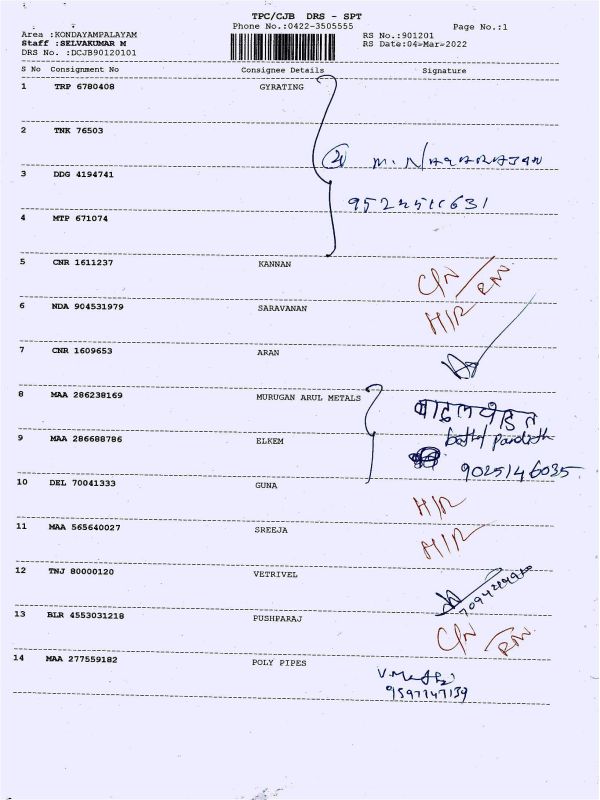 TPC/CJB DRS - SPT
Phone No.:0422-3505555 Page No.:1
Area :KONDAYAMPALAYAM RS No.:901201
Staff :SELVAKUMAR M RS Date:04-Mar-2022
DRS No. :DCJB90120101
S No Consignment No Consignee Details Signature
1 TRP 6780408 GYRATING
2 TNK 76503
M. NAGARAJAN
3 DDG 4194741
4 MTP 671074
5 CNR 1611237 KANNAN
C/N
6 NDA 904531979 SARAVANAN H/R
7 CNR 1609653 ARAN
8 MAA 286238169 MURUGAN ARUL METALS
9 MAA 286688786 ELKEM
9025146035
10 DEL 70041333 GUNA H/R
11 MAA 565640027 SREEJA H/R
12 TNJ 80000120 VETRIVEL
13 BLR 4553031218 PUSHPARAJ C/N
14 MAA 277559182 POLY PIPES
9597747139